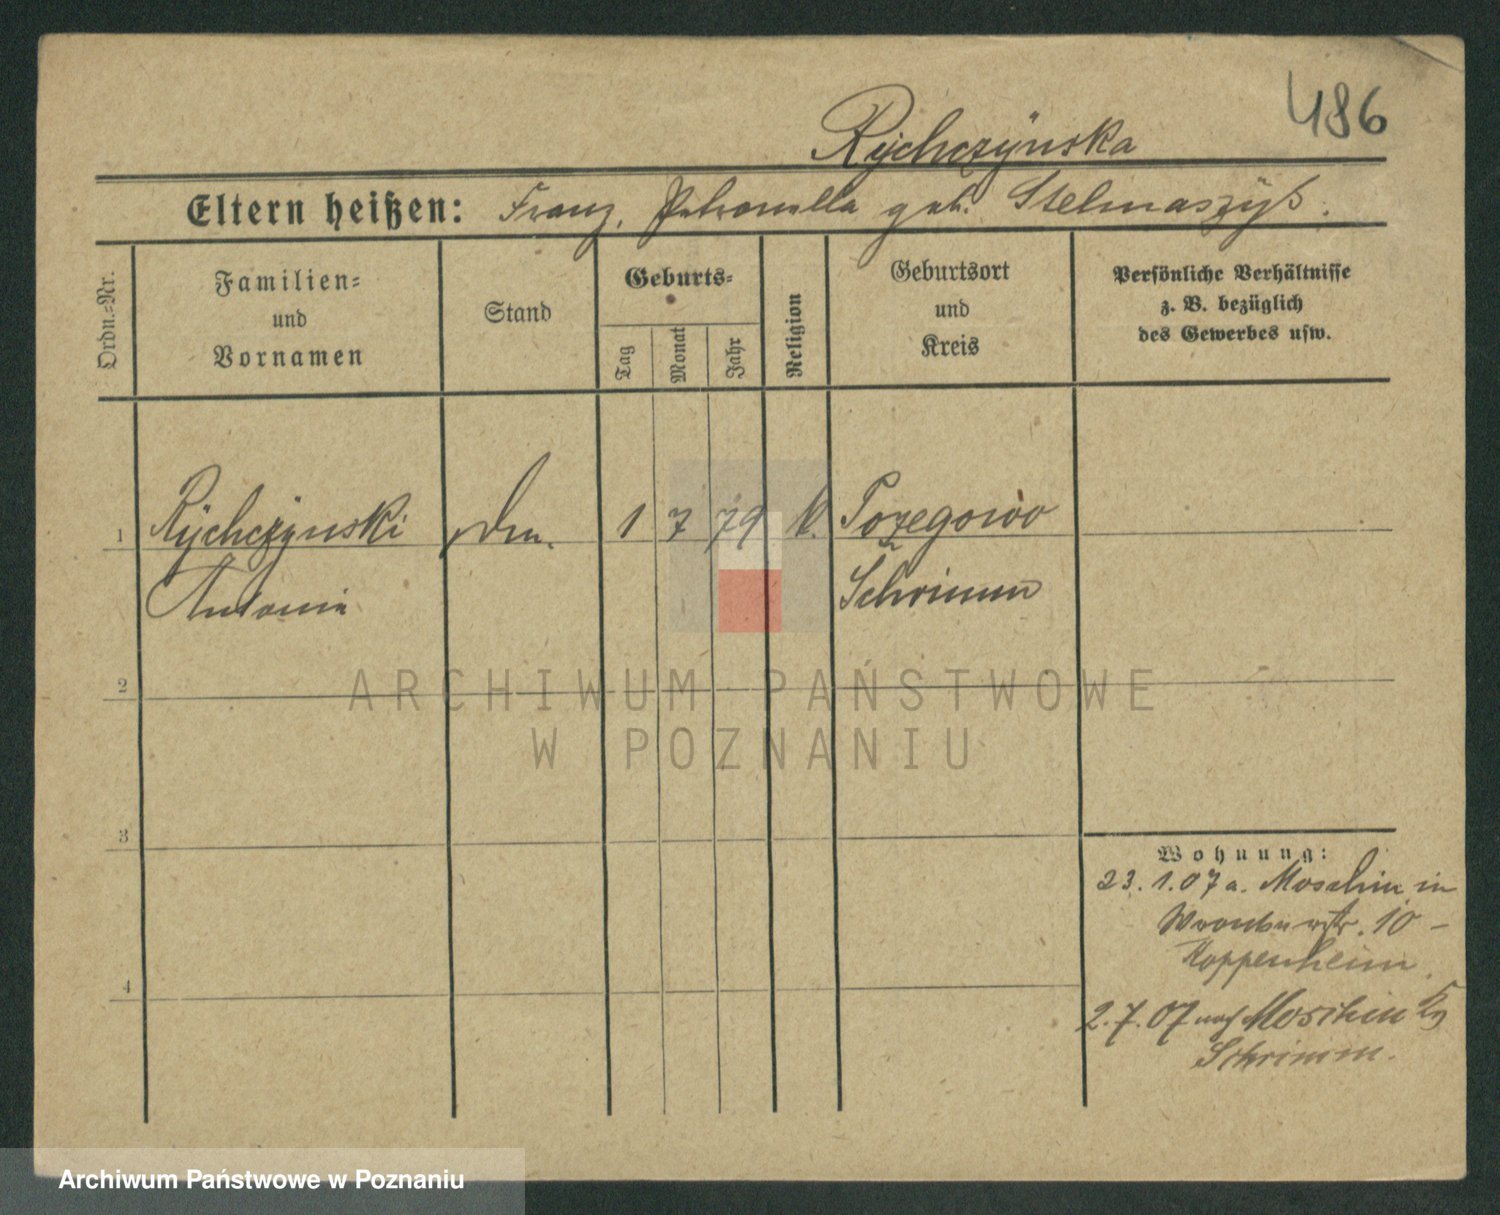 486
Rÿchczÿnska
Eltern heißen: Franz, Petronella geb. Stelmaszÿk.
Ordn.-Nr.
Familien-
und
Vornamen
Stand
Geburts-
Tag
Monat
Jahr
Religion
Geburtsort
und
Kreis
Persönliche Verhältnisse
z. B. bezüglich
des Gewerbes usw.
1 Rÿchczÿnski 1 7 79 k. Pozegowo
Antonie Schrimm
ARCHIWUM PAŃSTWOWE
2
W POZNANIU
3
Wohnung:
23. 1. 07 a. Moschin in
10 -
Koppenheim.
4
2. 7. 07 nach Moschin Krs
Schrimm.
Archiwum Państwowe w Poznaniu